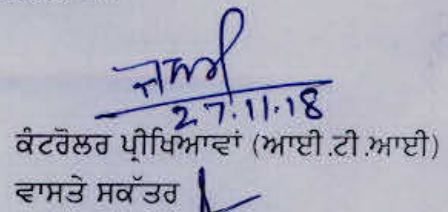 27.11.18
ਕੰਟਰੋਲਰ ਪ੍ਰੀਖਿਆਵਾਂ (ਆਈ.ਟੀ.ਆਈ)
ਵਾਸਤੇ ਸਕੱਤਰ